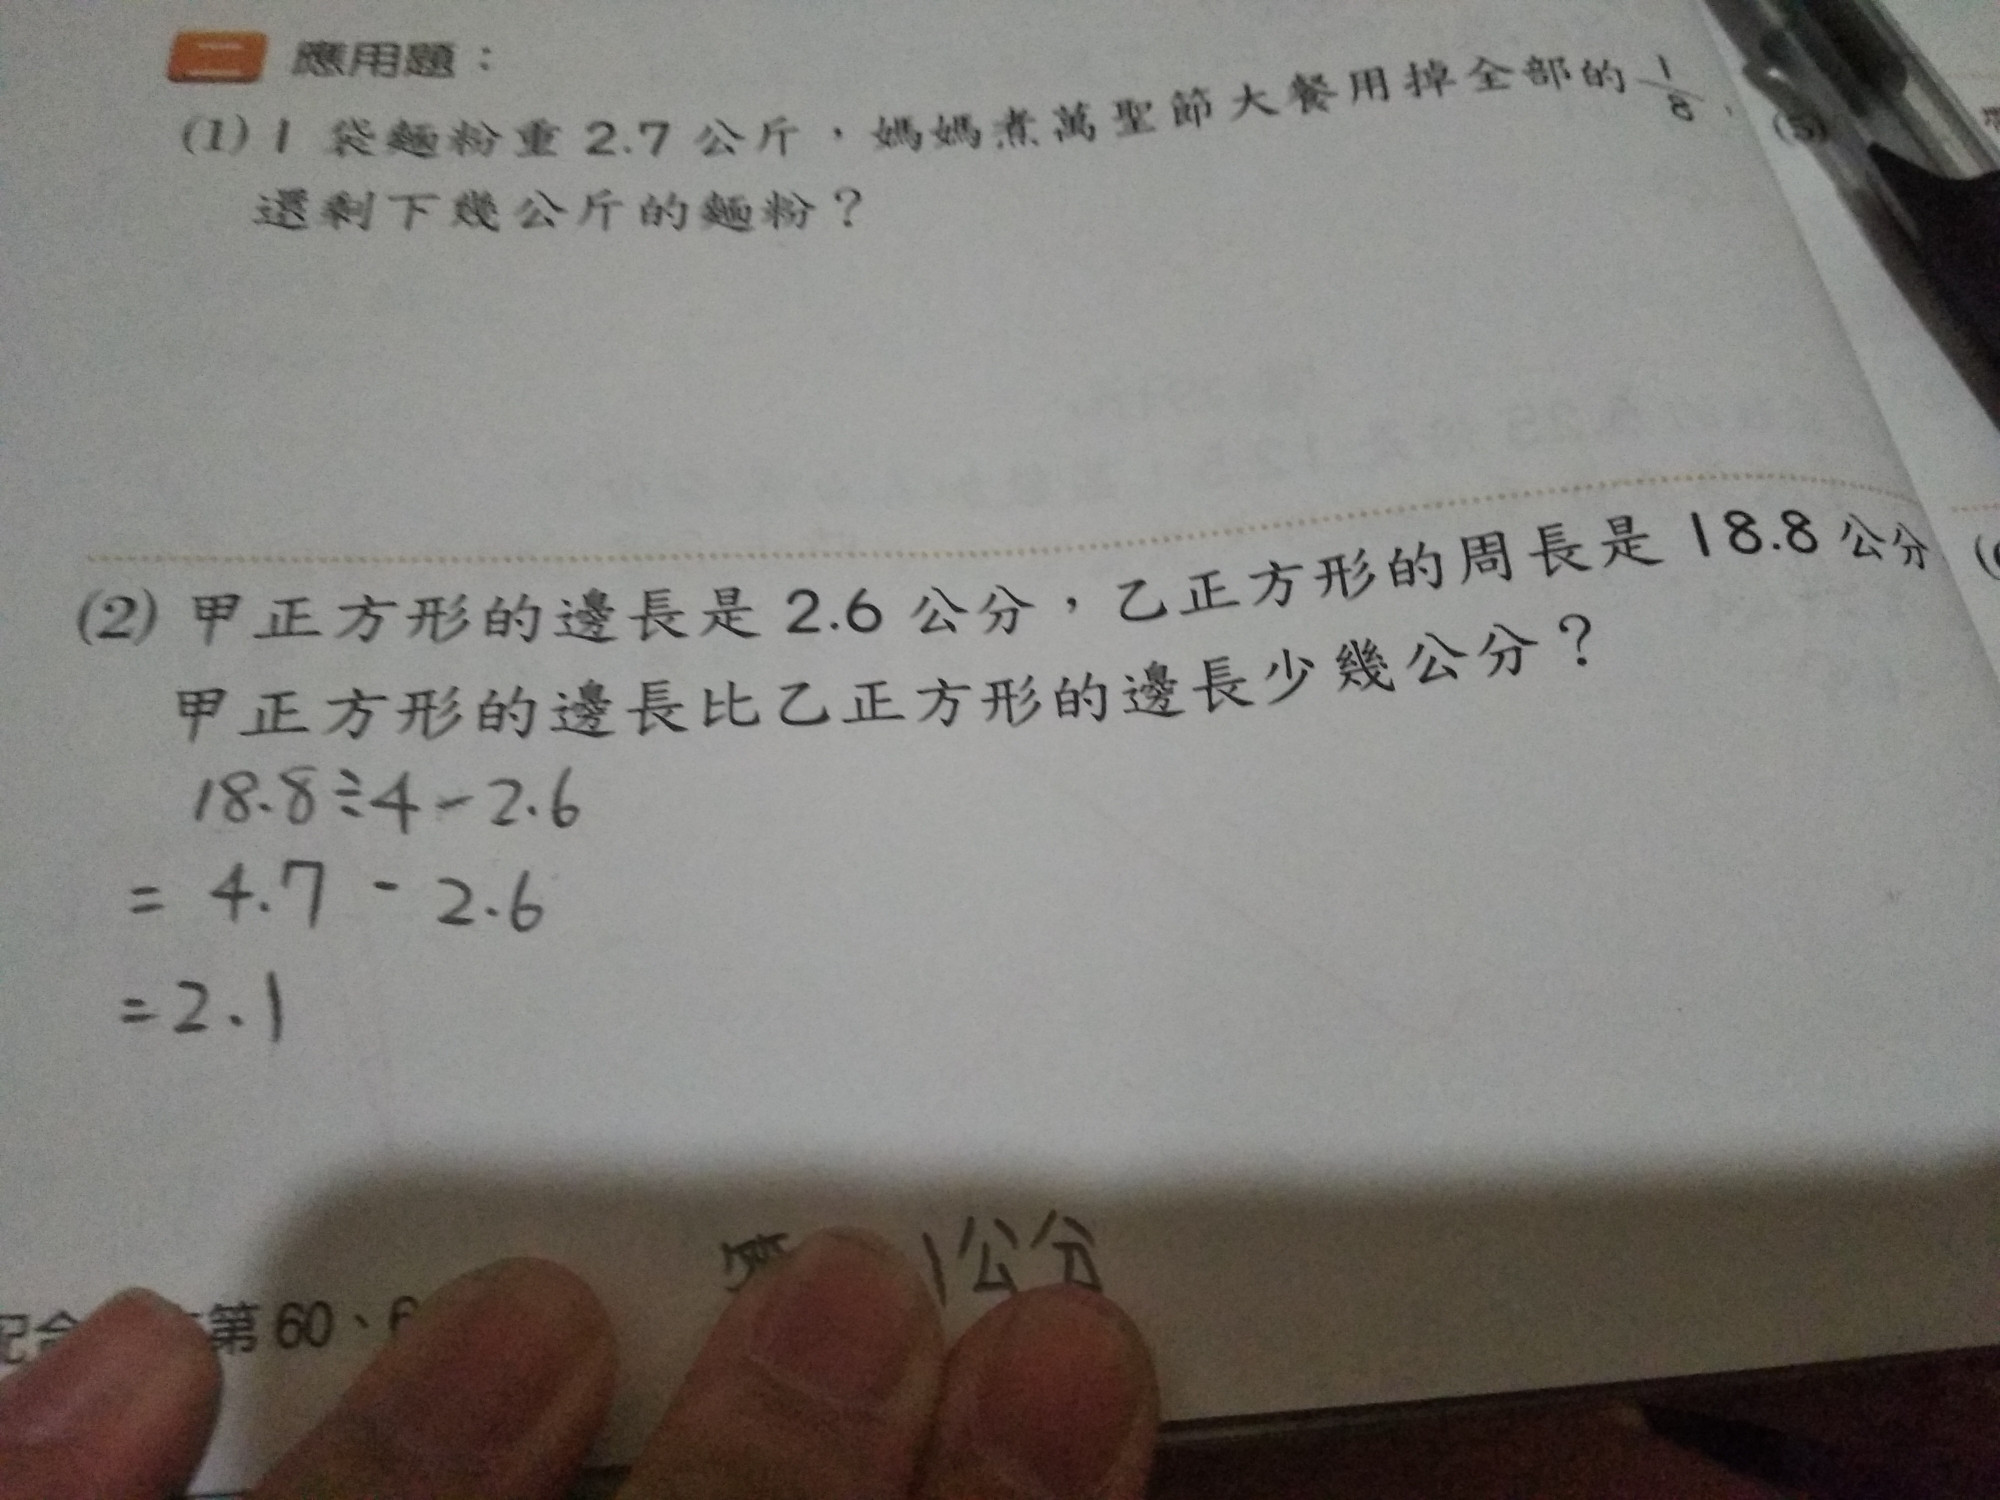 二 應用題：
(1) 1 袋麵粉重 2.7 公斤，媽媽煮萬聖節大餐用掉全部的 1/8，
還剩下幾公斤的麵粉？
(5)
(2) 甲正方形的邊長是 2.6 公分，乙正方形的周長是 18.8 公分
甲正方形的邊長比乙正方形的邊長少幾公分？
18.8÷4-2.6
= 4.7 - 2.6
=2.1
1公分
第 60、6